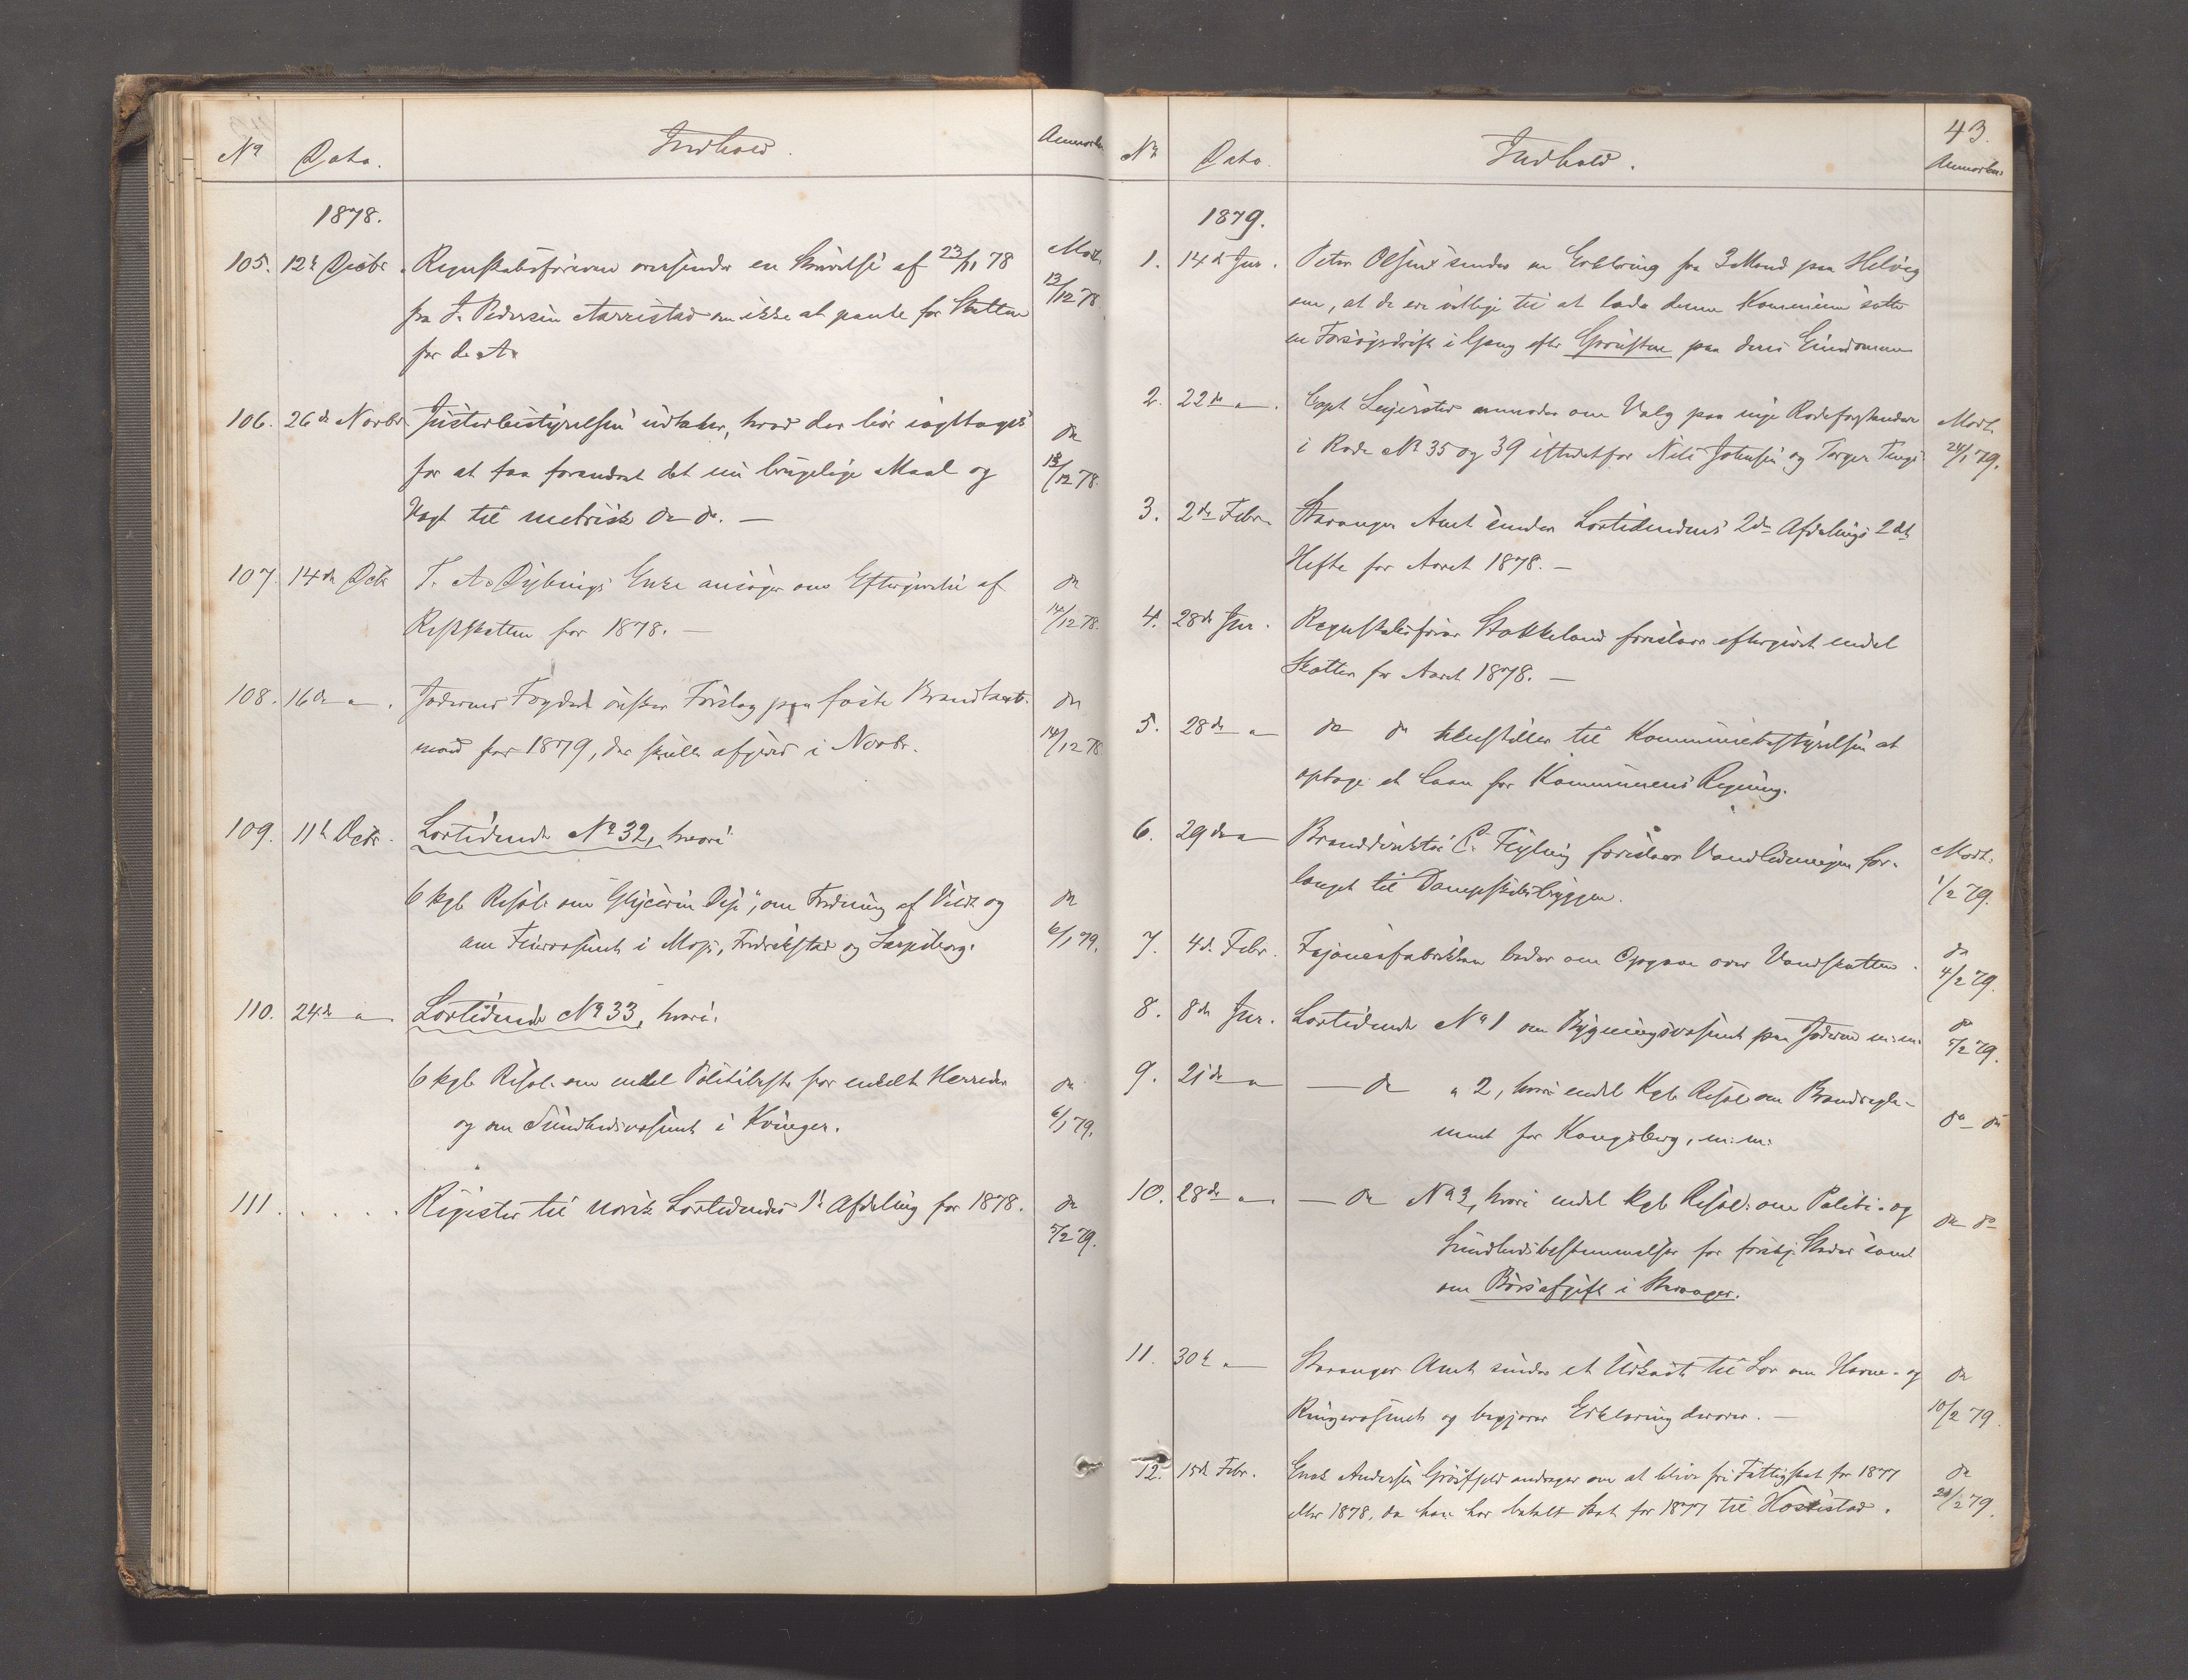 No Dato. Indhold. Anmærk.
1878.
105. 12te Decbr. Regnskabsføreren oversender en Skrivelse af 23/11 78 Modt. 13/12 78
fra J. Pedersen Aarrestad om ikke at pante for Skatten
for d. A.
106. 26de Novbr. Justerbestyrelsen udtaler, hvad der bør iagttages do
for at faa forandret det nu brugelige Maal og 13/12 78.
Vægt til metrisk do do. —
107. 14de Dcbr T. A. Dybings Enke ansøger om Eftergivelse af do
Restskatten for 1878. — 14/12 78.
108. 16de " . Jæderens Fogderi ønsker Forslag paa faste Brandtaxt- do
mænd for 1879, der skulle afgives i Novbr. 14/12 78
109. 11te Dcbr. Lovtidende No 32, hvori
6 kgl. Resol. om "Glycerin Dip", om Fredning af Vildt og do
om Feiervæsenet i Moss, Fredrikstad og Sarpsborg. 6/1 79.
110. 24de " Lovtidende No 33, hvori:
6 kgl. Resol. om endel Politibest. for endelt Herreder do
og om Sundhedsvæsenet i Kvinger. 6/1 79.
111. . . . . Register til norsk Lovtidendes 1ste Afdeling for 1878. do
5/2 79.
43.
No Dato. Indhold. Anmærkn.
1879.
1. 14de Jnr. Peter Olsen sender en Erklæring fra 3 Mænd paa Helvig
om, at de ere villige til at lade denne Kommune sætte
en Forsøgsdrift i Gang efter Grøusten paa deres Eiendomme
2. 22de " . Capt. Seyersted anmodes om Valg paa nye Rodeforstandere Modt.
i Rode No 35 og 39 istedetfor Nils Johnsen og Torger Tengs. 24/1 79.
3. 2de Febr. Stavanger Amt sender Lovtidendens 2den Afdelings 2det
Hefte for Aaret 1878. —
4. 28de Jnr. Regnskabsfører Stokkeland foreslaar eftergivet endel
Skatter for Aaret 1878. —
5. 28de " do do henstiller til Kommunebestyrelsen at
optage et Laan for Kommunens Regning.
6. 29de " Branddirektør C. Feyling foreslaar Vandledningen for- Modt.
længet til Dampskibsbryggen. 1/2 79.
7. 4de Febr. Fajancefabrikken beder om Opgave over Vandskatten. do 4/2 79.
8. 8de Jnr. Lovtidende No 1 om Bygningsvæsenet paa Jæderen m. m. do 5/2 79.
9. 21de " — do " 2, hvori endel Kgl. Resol. om Brandregle-
ment for Kongsberg, m. m. do do
10. 28de " — do No 3, hvori endel kgl. Resol. om Politi- og do do
Sundhedsbestemmelser for forskj. Steder samt
om Børsafgift i Stavanger.
11. 30te " Stavanger Amt sender et Udkast til Lov om Havne- og do
Ringevæsenet og begjærer Erklæring derover. — 10/2 79.
12. 15de Febr. Enok Andersen Grøsfjeld andrager om at blive fri Fattigskat for 1877 do
eller 1878, da han har betalt Skat for 1877 til Hosistad. 24/2 79.